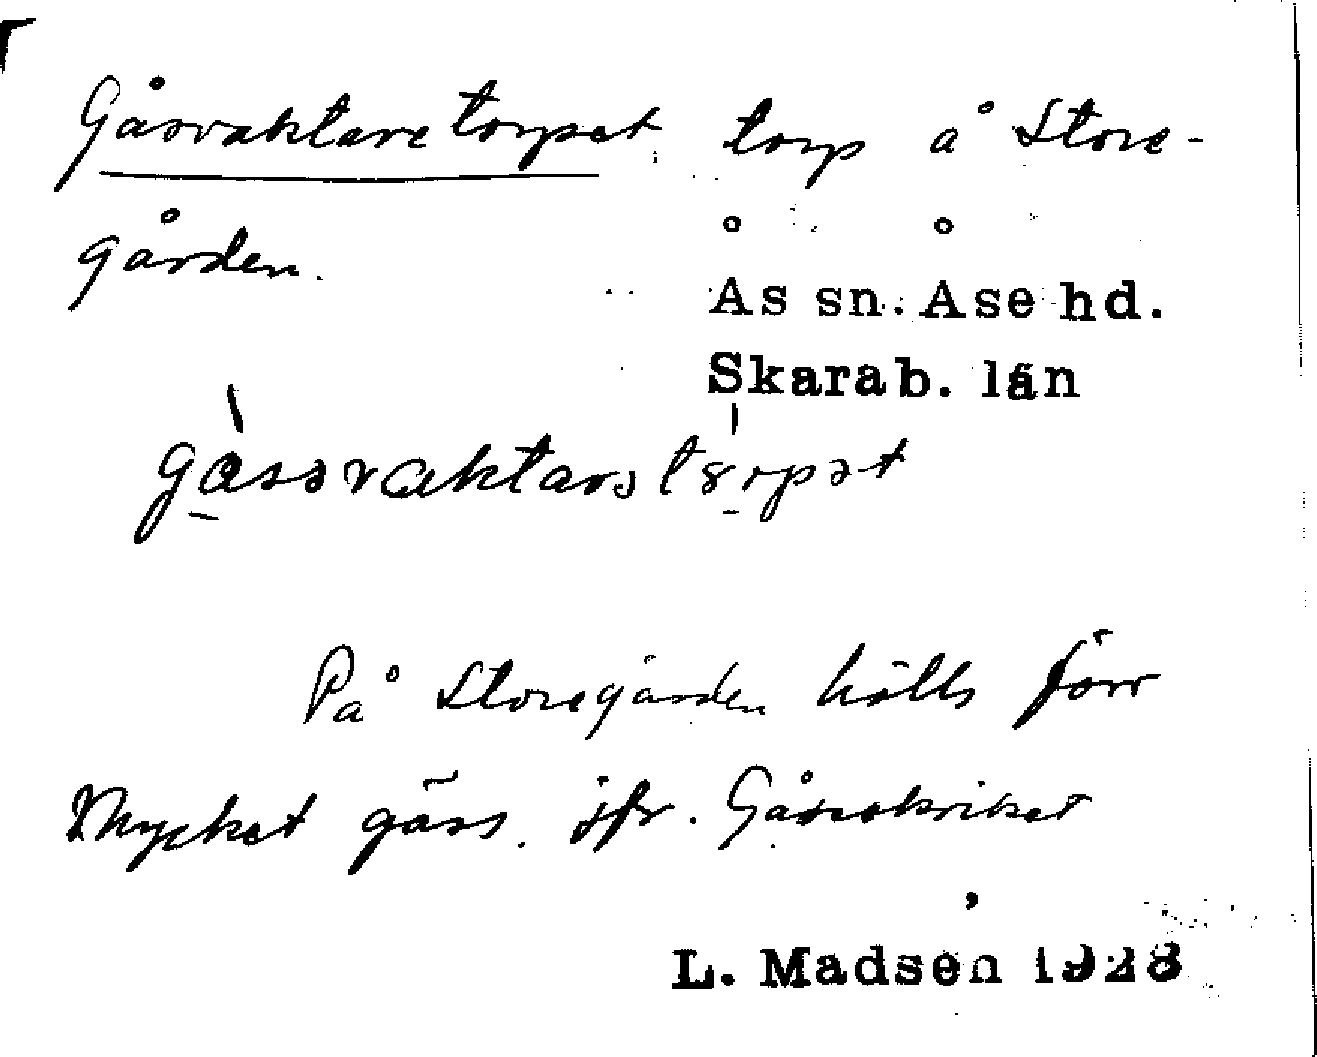 Gåsvaktaretorpet torp å Store-
gården.
Ås sn. Åse hd.
Skarab. län
gåsavaktarətȣrpət
På Storegården hölls förr
Mycket gäss. jfr. Gåsaskriket
L. Madsen 1928